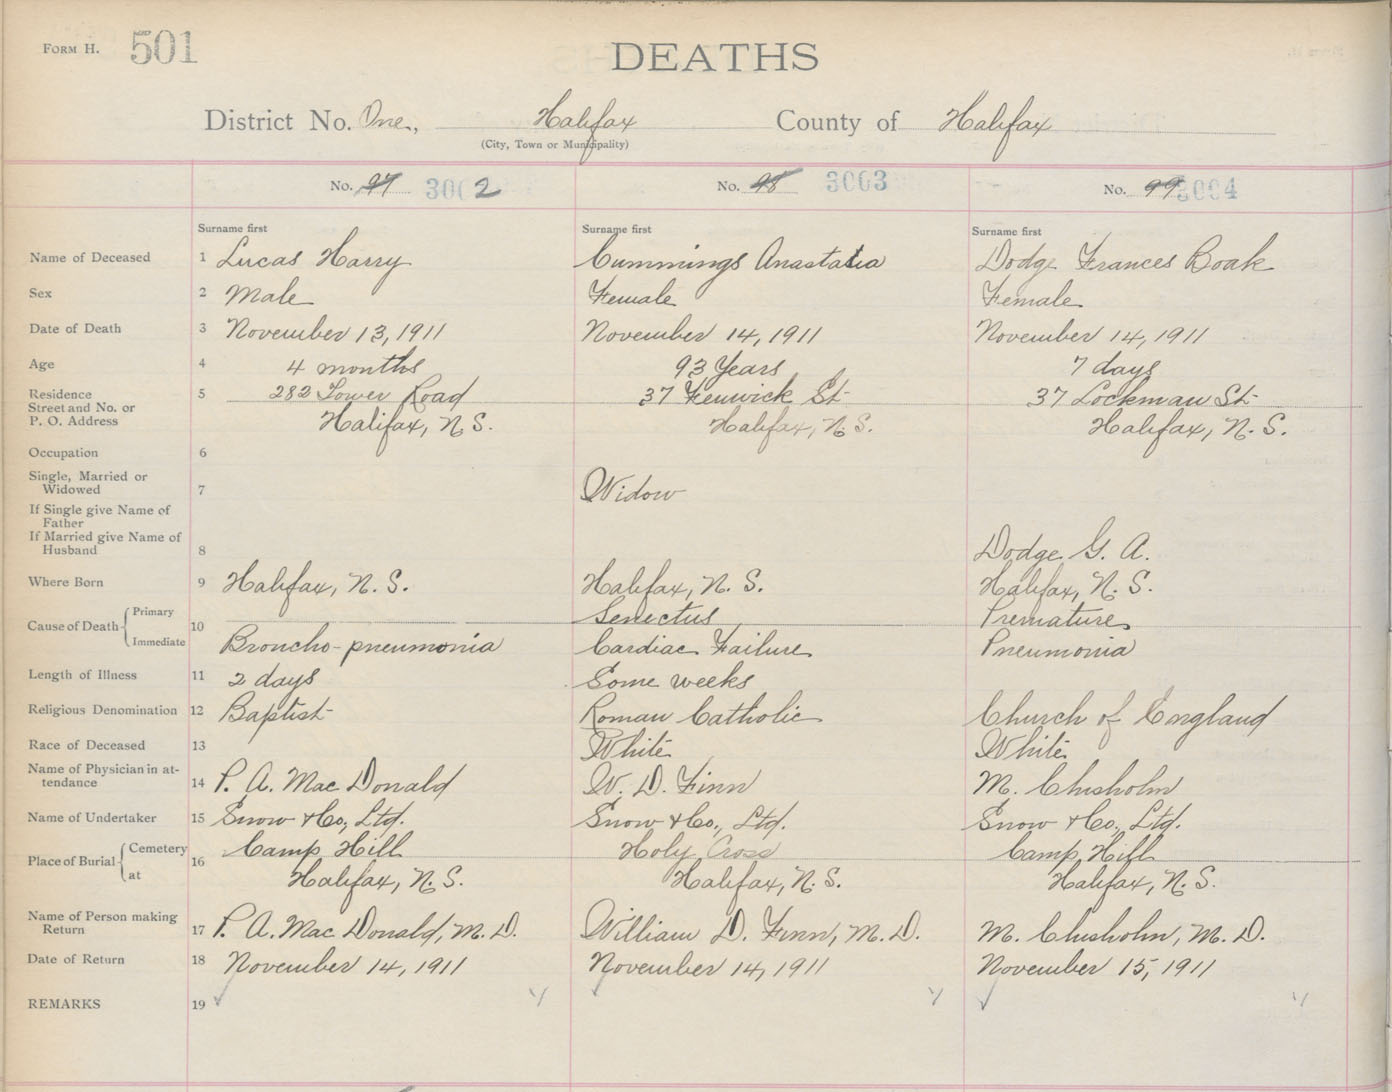 FORM H. 501
DEATHS
District No. One, Halifax County of Halifax
(City, Town or Municipality)
No. 97 3002 No. 98 3003 No. 99 3004
Surname first Surname first Surname first
Name of Deceased 1 Lucas Harry Cummings Anastatia Dodge Frances Boak
Sex 2 Male Female Female
Date of Death 3 November 13, 1911 November 14, 1911 November 14, 1911
Age 4 4 months 93 Years 7 days
Residence 5 282 Tower Road 37 Fenwick St 37 Lockman St
Street and No. or
P. O. Address Halifax, N.S. Halifax, N.S. Halifax, N.S.
Occupation 6
Single, Married or
Widowed 7 Widow
If Single give Name of
Father
If Married give Name of
Husband 8 Dodge G. A.
Where Born 9 Halifax, N.S. Halifax, N.S. Halifax, N.S.
Cause of Death Primary 10 Senectus Premature
Immediate Broncho-pneumonia Cardiac Failure Pneumonia
Length of Illness 11 2 days Some weeks
Religious Denomination 12 Baptist Roman Catholic Church of England
Race of Deceased 13 White White
Name of Physician in at-
tendance 14 P. A. Mac Donald W. D. Finn M. Chisholm
Name of Undertaker 15 Snow & Co., Ltd. Snow & Co., Ltd. Snow & Co., Ltd.
Place of Burial Cemetery 16 Camp Hill Holy Cross Camp Hill
at Halifax, N.S. Halifax, N.S. Halifax, N.S.
Name of Person making
Return 17 P. A. Mac Donald, M.D. William D. Finn, M.D. M. Chisholm, M.D.
Date of Return 18 November 14, 1911 November 14, 1911 November 15, 1911
REMARKS 19